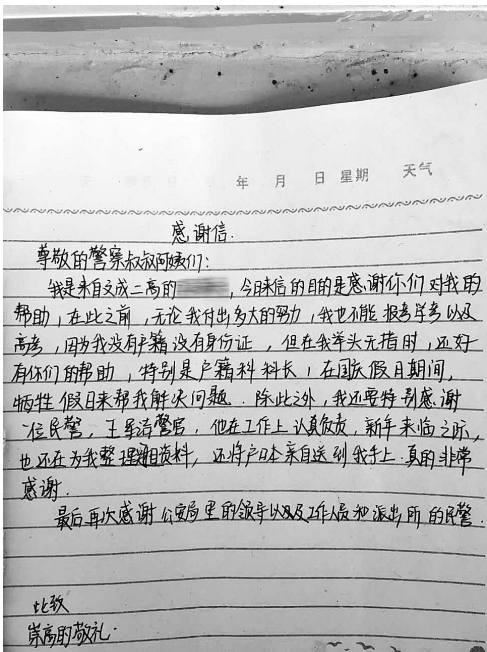 年 月 日 星期 天气
感谢信.
尊敬的警察叔叔阿姨们:
我是来自文成二高的 , 今日来信的目的是感谢你们对我的
帮助, 在此之前, 无论我付出多大的努力, 我也不能报考学考以及
高考, 因为我没有户籍没有身份证, 但在我举头无措时, 还好
有你们的帮助, 特别是户籍科科长, 在国庆假日期间,
牺牲假日来帮我解决问题. 除此之外, 我还要特别感谢
一位民警, 王 警官, 他在工作上认真负责, 新年来临之际,
也还在为我整理 资料, 还将户口本亲自送到我手上. 真的非常
感谢.
最后再次感谢公安局里的领导以及工作人员和派出所的民警.
此致
崇高的敬礼.